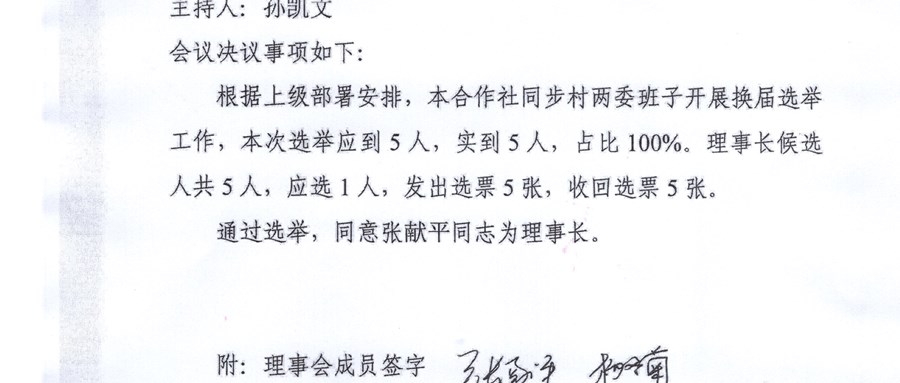 主持人：孙凯文
会议决议事项如下：
根据上级部署安排，本合作社同步村两委班子开展换届选举
工作，本次选举应到 5 人，实到 5 人，占比 100%。理事长候选
人共 5 人，应选 1 人，发出选票 5 张，收回选票 5 张。
通过选举，同意张献平同志为理事长。
附：理事会成员签字